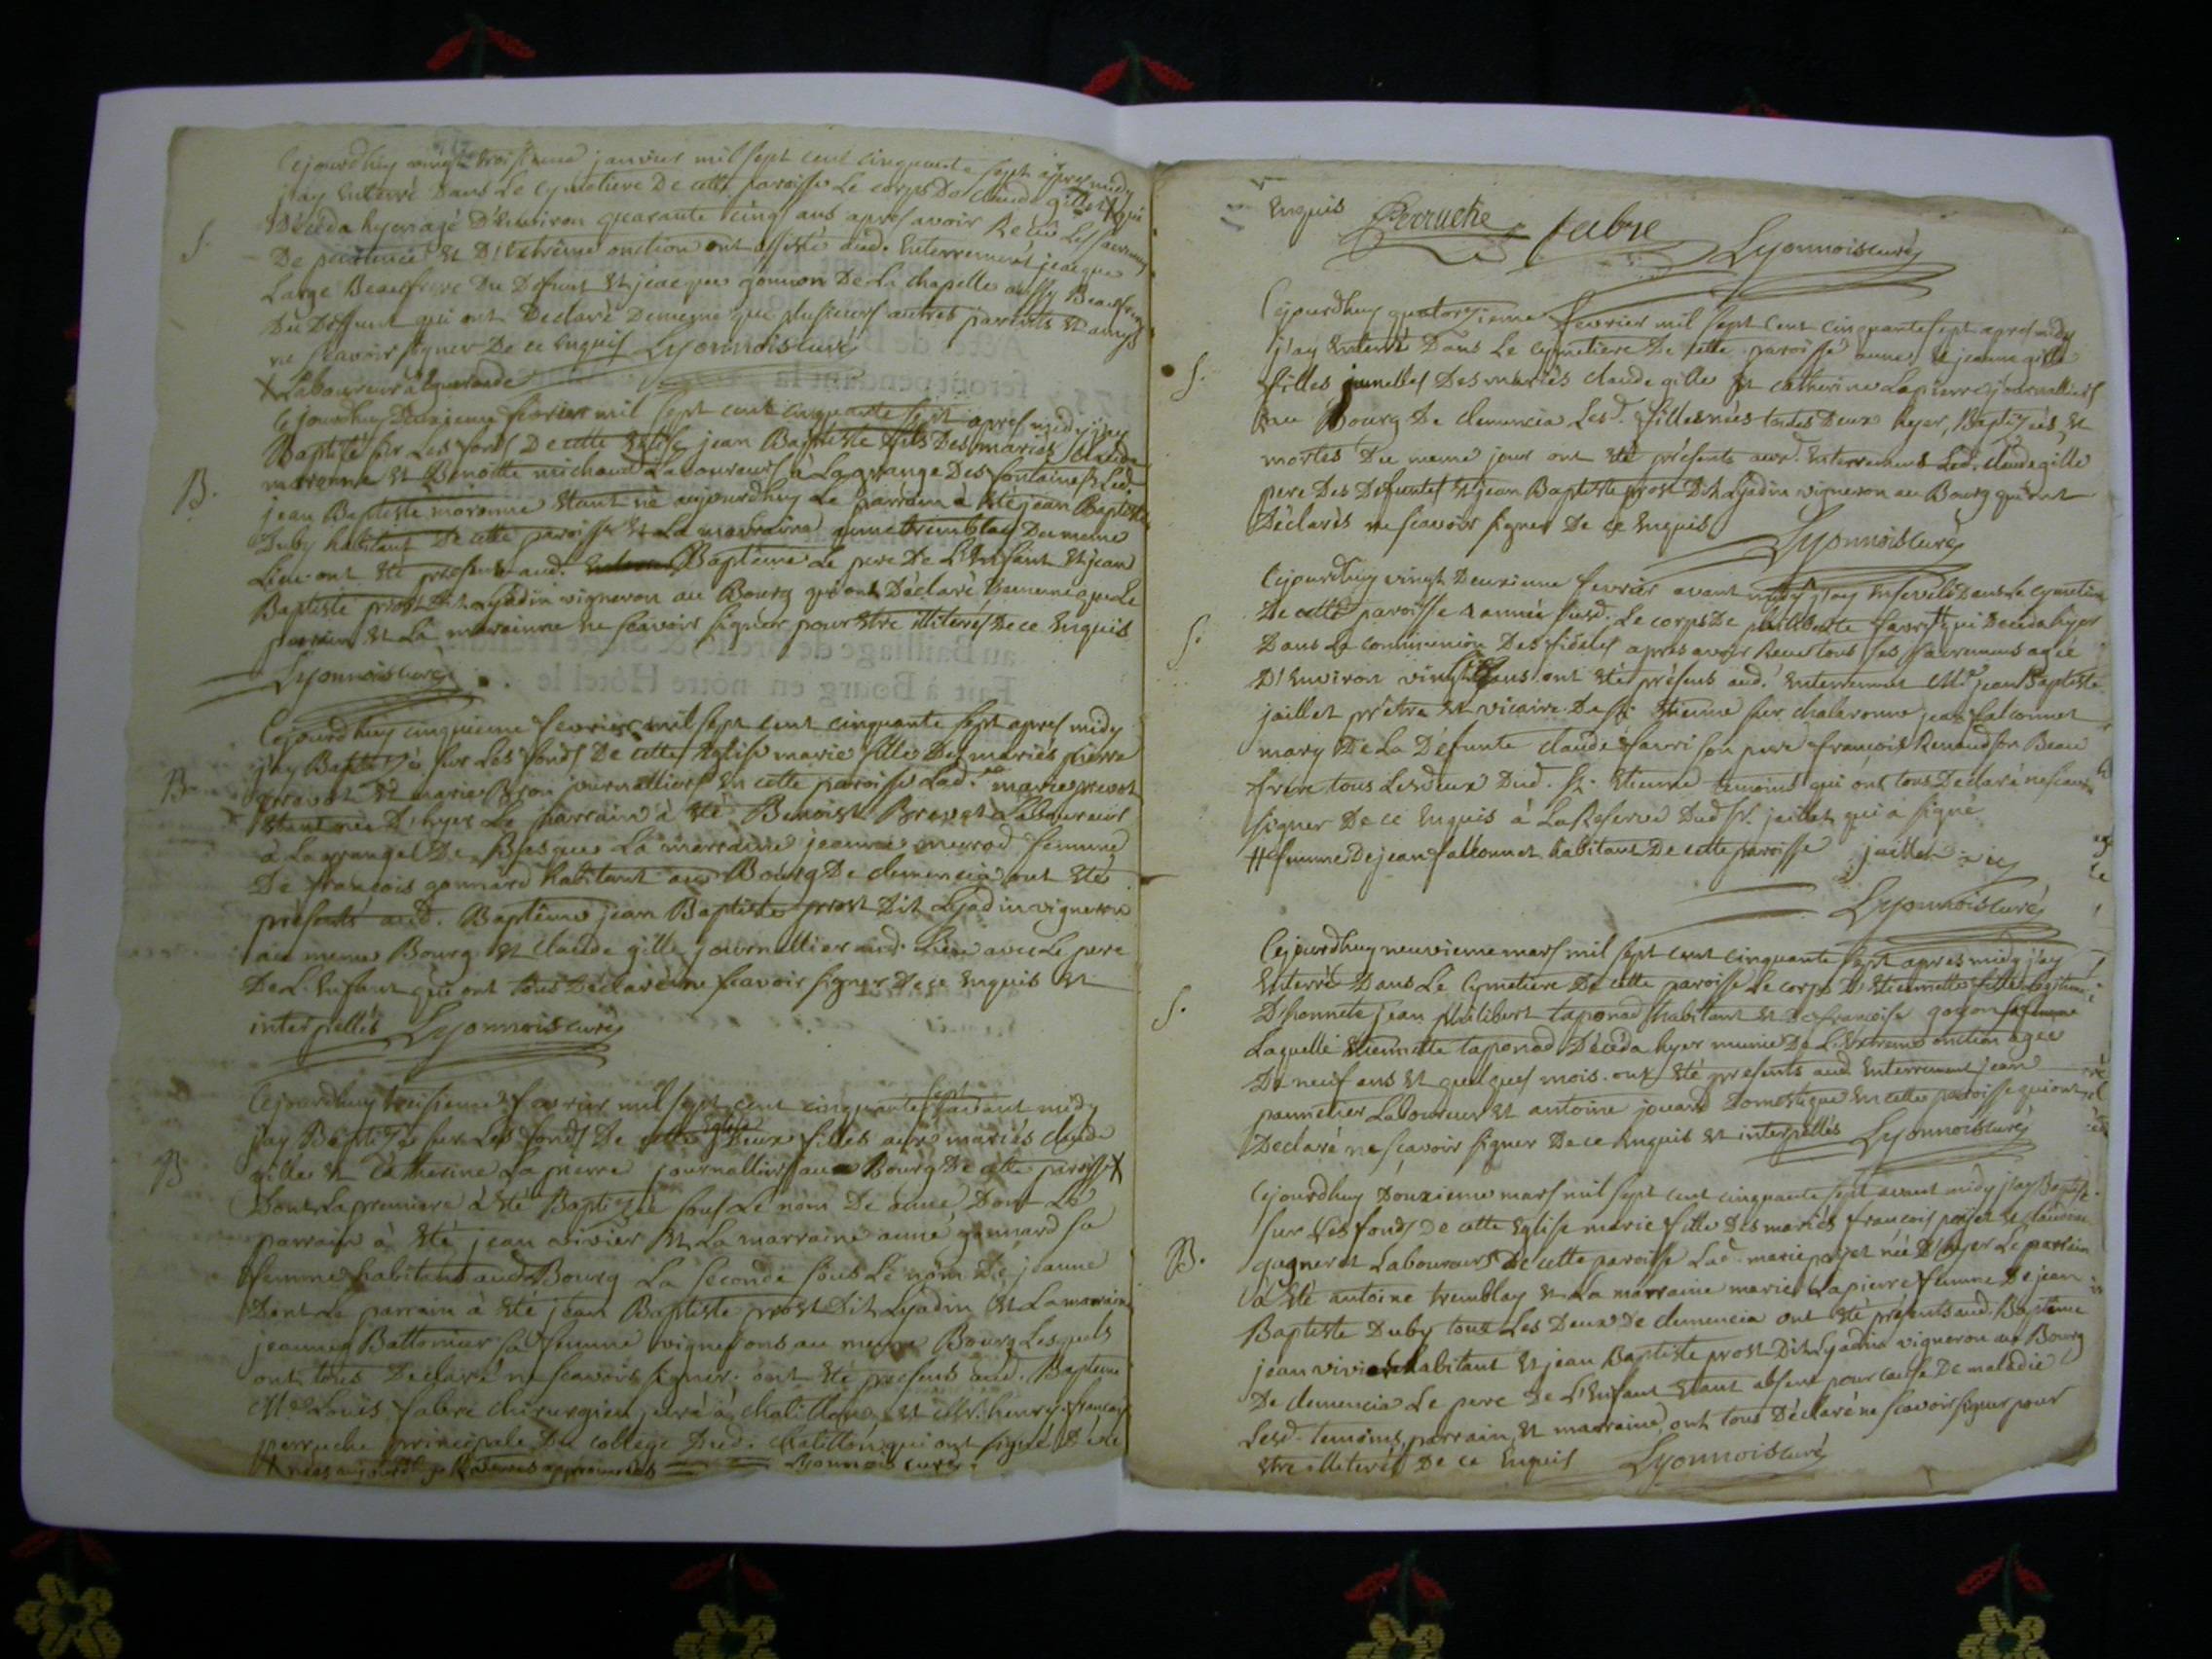 Cejourdhuy vingt troisieme janvier mil sept cent cinquante sept apres midy
j'ay Enterré Dans Le Cymetiere De cette paroisse Le corps De Claude gillet X qui
S.
Décéda hyer agé D'Environ quarante cinq ans apres avoir Recu Les Sacremens
De pénitence Et D'Extrême onction ont assisté aud. Enterrement jacque
Large Beaufrere Du Défunt Et jacque gonnon De La chapelle aussy Beaufrere
Du Deffunt qui ont Déclaré Dememe que plusieurs autres parents Et amys
ne scavoir signer De ce Enquis Lyonnois curé
X Laboureur
Cejourdhuy Deuxieme fevrier mil sept cent cinquante sept apres midy j'ay
Baptisé sur Les fonds De cette Eglise jean Baptiste fils Des mariés Claude
B.
moronne Et Benoitte michaud Laboureurs à La grange Des fontaines Led.
jean Baptiste moronne Etant né aujourdhuy Le parrain à Eté jean Baptiste
Duby habitant De cette paroisse Et La marraine anne tremblay Du meme
Lieu ont Eté présents aud. Baptême Le pere De L'Enfant Et jean
Baptiste prost Dit Lyadin vigneron au Bourg qui ont Déclaré Dememe que Le
parrain Et La marainne ne scavoir signer pour Etre illiterés De ce Enquis
Lyonnois curé
Cejourdhuy cinquieme fevrier mil sept cent cinquante sept apres midy
j'ay Baptizée sur Les fonds De cette Eglise marie fille Des mariés pierre
B.
prevot Et marie Bron journalliers En cette paroisse Lad. marie prevot
Etant née D'hyer Le parrain à Eté Benoist Brevet Laboureur
à La grange De La marraine jeanne murod femme
De françois gonnard habitant au Bourg De clemencia ont Eté
présents aud. Baptême jean Baptiste prost Dit Lyadin vigneron
au meme Bourg Et claude gille journallier aud. Lieu avec Le pere
De L'Enfant qui ont tous Déclaré ne scavoir signer De ce Enquis Et
interpellés Lyonnois curé
Cejourdhuy treisieme fevrier mil sept cent cinquante sept avant midy
j'ay Baptizée sur Les fonds De cette Eglise Deux filles aux mariés claude
B
gille Et Catherine La pierre journalliers au Bourg De cette paroisse X
Dont La premiere à Eté Baptizée sous Le nom De anne Dont Le
parrain à Eté jean vivier Et La marraine anne gonnard sa
femme habitans aud. Bourg La seconde sous Le nom De jeanne
Dont Le parrain à Eté jean Baptiste prost Dit Lyadin Et La marraine
jeanne Battonier sa femme vignerons au meme Bourg Lesquels
ont tous Déclaré ne scavoir signer. ont Eté presens aud. Bapteme
Mre Loüis fabre chirurgien juré à chatillon Et Mr. henry françois
perruche principale Du college Dud. chatillon qui ont signé De ce
X nées aujourd'huy Lyonnois curé
Enquis Perruche fabre Lyonnois curé
Cejourdhuy quatorzieme fevrier mil sept cent cinquante sept apres midy
S.
j'ay Enterré Dans Le Cymetiere De cette paroisse anne Et jeanne gille
filles jumelles Des mariés claude gille Et catherine Lapierre journalliers
au Bourg De clemencia Lesd. filles nées toutes Deux hyer, Baptizées, Et
mortes Du meme jour ont Eté présents aux d. Enterremens Led. claude gille
pere Des Defuntes Et jean Baptiste prost Dit Lyadin vigneron au Bourg qui ont
Déclarés ne scavoir signer De ce Enquis Lyonnois curé
Cejourdhuy vingt Deuxieme fevrier avant midy j'ay Enseveli Dans Le Cymetiere
De cette paroisse année susd. Le corps De philiberte favri # qui Deceda hyer
S.
Dans La communion Des fideles apres avoir Receu tous ses sacremens agée
D'Environ vingt ans ont Eté présens aud. Enterrement Mre jean Baptiste
jaillet prêtre Et vicaire De St. Etienne sur chalaronne jean falconnet
mary De La Défunte claude favri son pere françois Renaud son Beau
frere tous Lesdeux Dud. St. Etienne temoins qui ont tous Déclaré ne scavoir
signer De ce Enquis à La Reserve Dud Sr. jaillet qui à signé
# femme De jean falconnet habitant De cette paroisse jaillet
Lyonnois curé
Cejourdhuy neuvieme mars mil sept cent cinquante sept apres midy j'ay
Enterré Dans Le Cymetiere De cette paroisse Le corps D'Etiennette fille Legitime
S.
D'honnete jean philibert taponad habitant Et De francoise goyon sa femme
Laquelle Etiennette taponad Décéda hyer munie De L'Extreme onction agée
De neuf ans Et quelques mois. ont Eté presents aud. Enterrement jean
pannetier Laboureur Et antoine jouard Domestique En cette paroisse qui ont
Declaré ne scavoir signer De ce Enquis Et interpellés Lyonnois curé
Cejourdhuy Douzieme mars mil sept cent cinquante sept avant midy j'ay Baptisé
sur Les fonds De cette Eglise marie fille Des mariés françois poyet Et claudine
B.
gagneret Laboureurs De cette paroisse Lad. marie poyet née D'hyer Le parrain
à Eté antoine tremblay Et La marraine marie Lapierre femme De jean
Baptiste Duby tous Les Deux De clemencia ont Eté présents aud. Baptême
jean vivier habitant Et jean Baptiste prost Dit Lyadin vigneron au Bourg
De clemencia Le pere De L'Enfant Etant absent pour cause De maladie
Lesd. temoins, parrain, Et marraine, ont tous Déclaré ne scavoir signer pour
Etre illiterés De ce Enquis Lyonnois curé